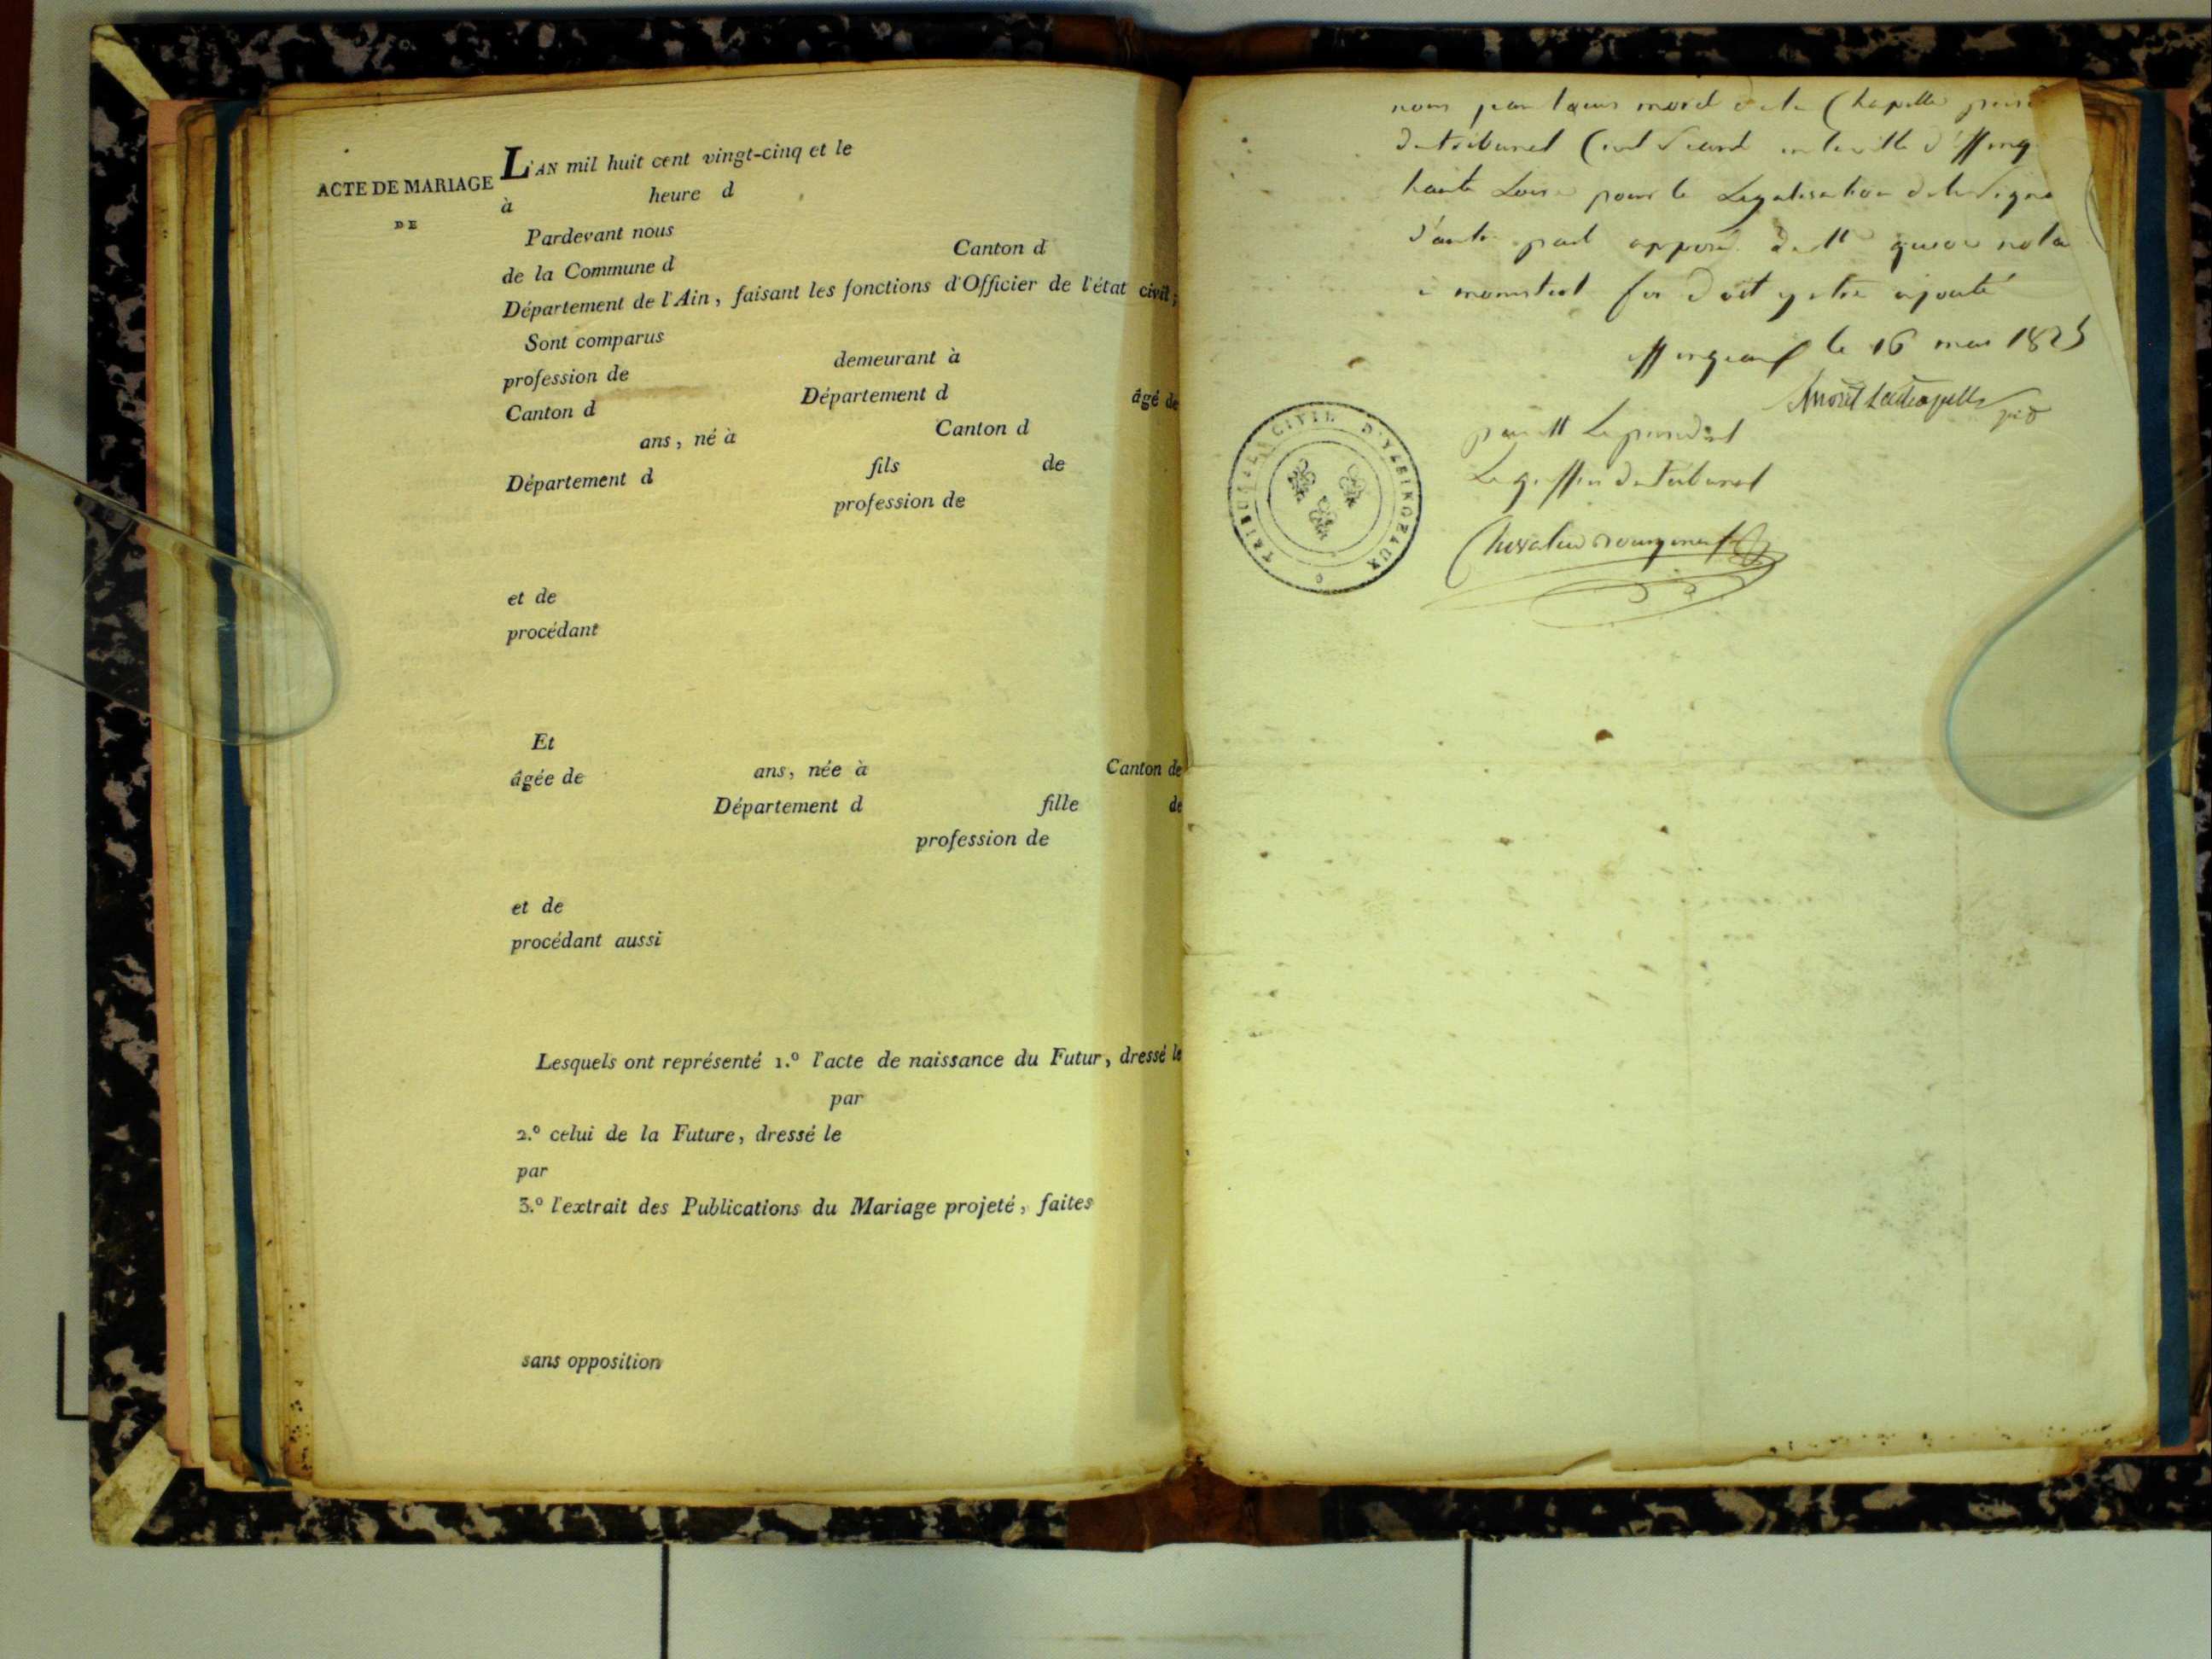 ACTE DE MARIAGE
DE
L'AN mil huit cent vingt-cinq et le
à heure d
Pardevant nous
de la Commune d Canton d
Département de l'Ain, faisant les fonctions d'Officier de l'état civil;
Sont comparus
profession de demeurant à
Canton d Département d âgé de
ans, né à Canton d
Département d fils de
profession de
et de
procédant
Et
âgée de ans, née à Canton de
Département d fille de
profession de
et de
procédant aussi
Lesquels ont représenté 1.º l'acte de naissance du Futur, dressé le
par
2.º celui de la Future, dressé le
par
3.º l'extrait des Publications du Mariage projeté, faites
sans opposition
nous morel de la Chapelle
du tribunal Civil séant
haute Loire pour la Legalisation de la
d'autre part
foi doit y etre ajouté
le 16 mai 1825
Morel Lachapelle
Le greffier du Tribunal
TRIBUNAL CIVIL D'YSSINGEAUX